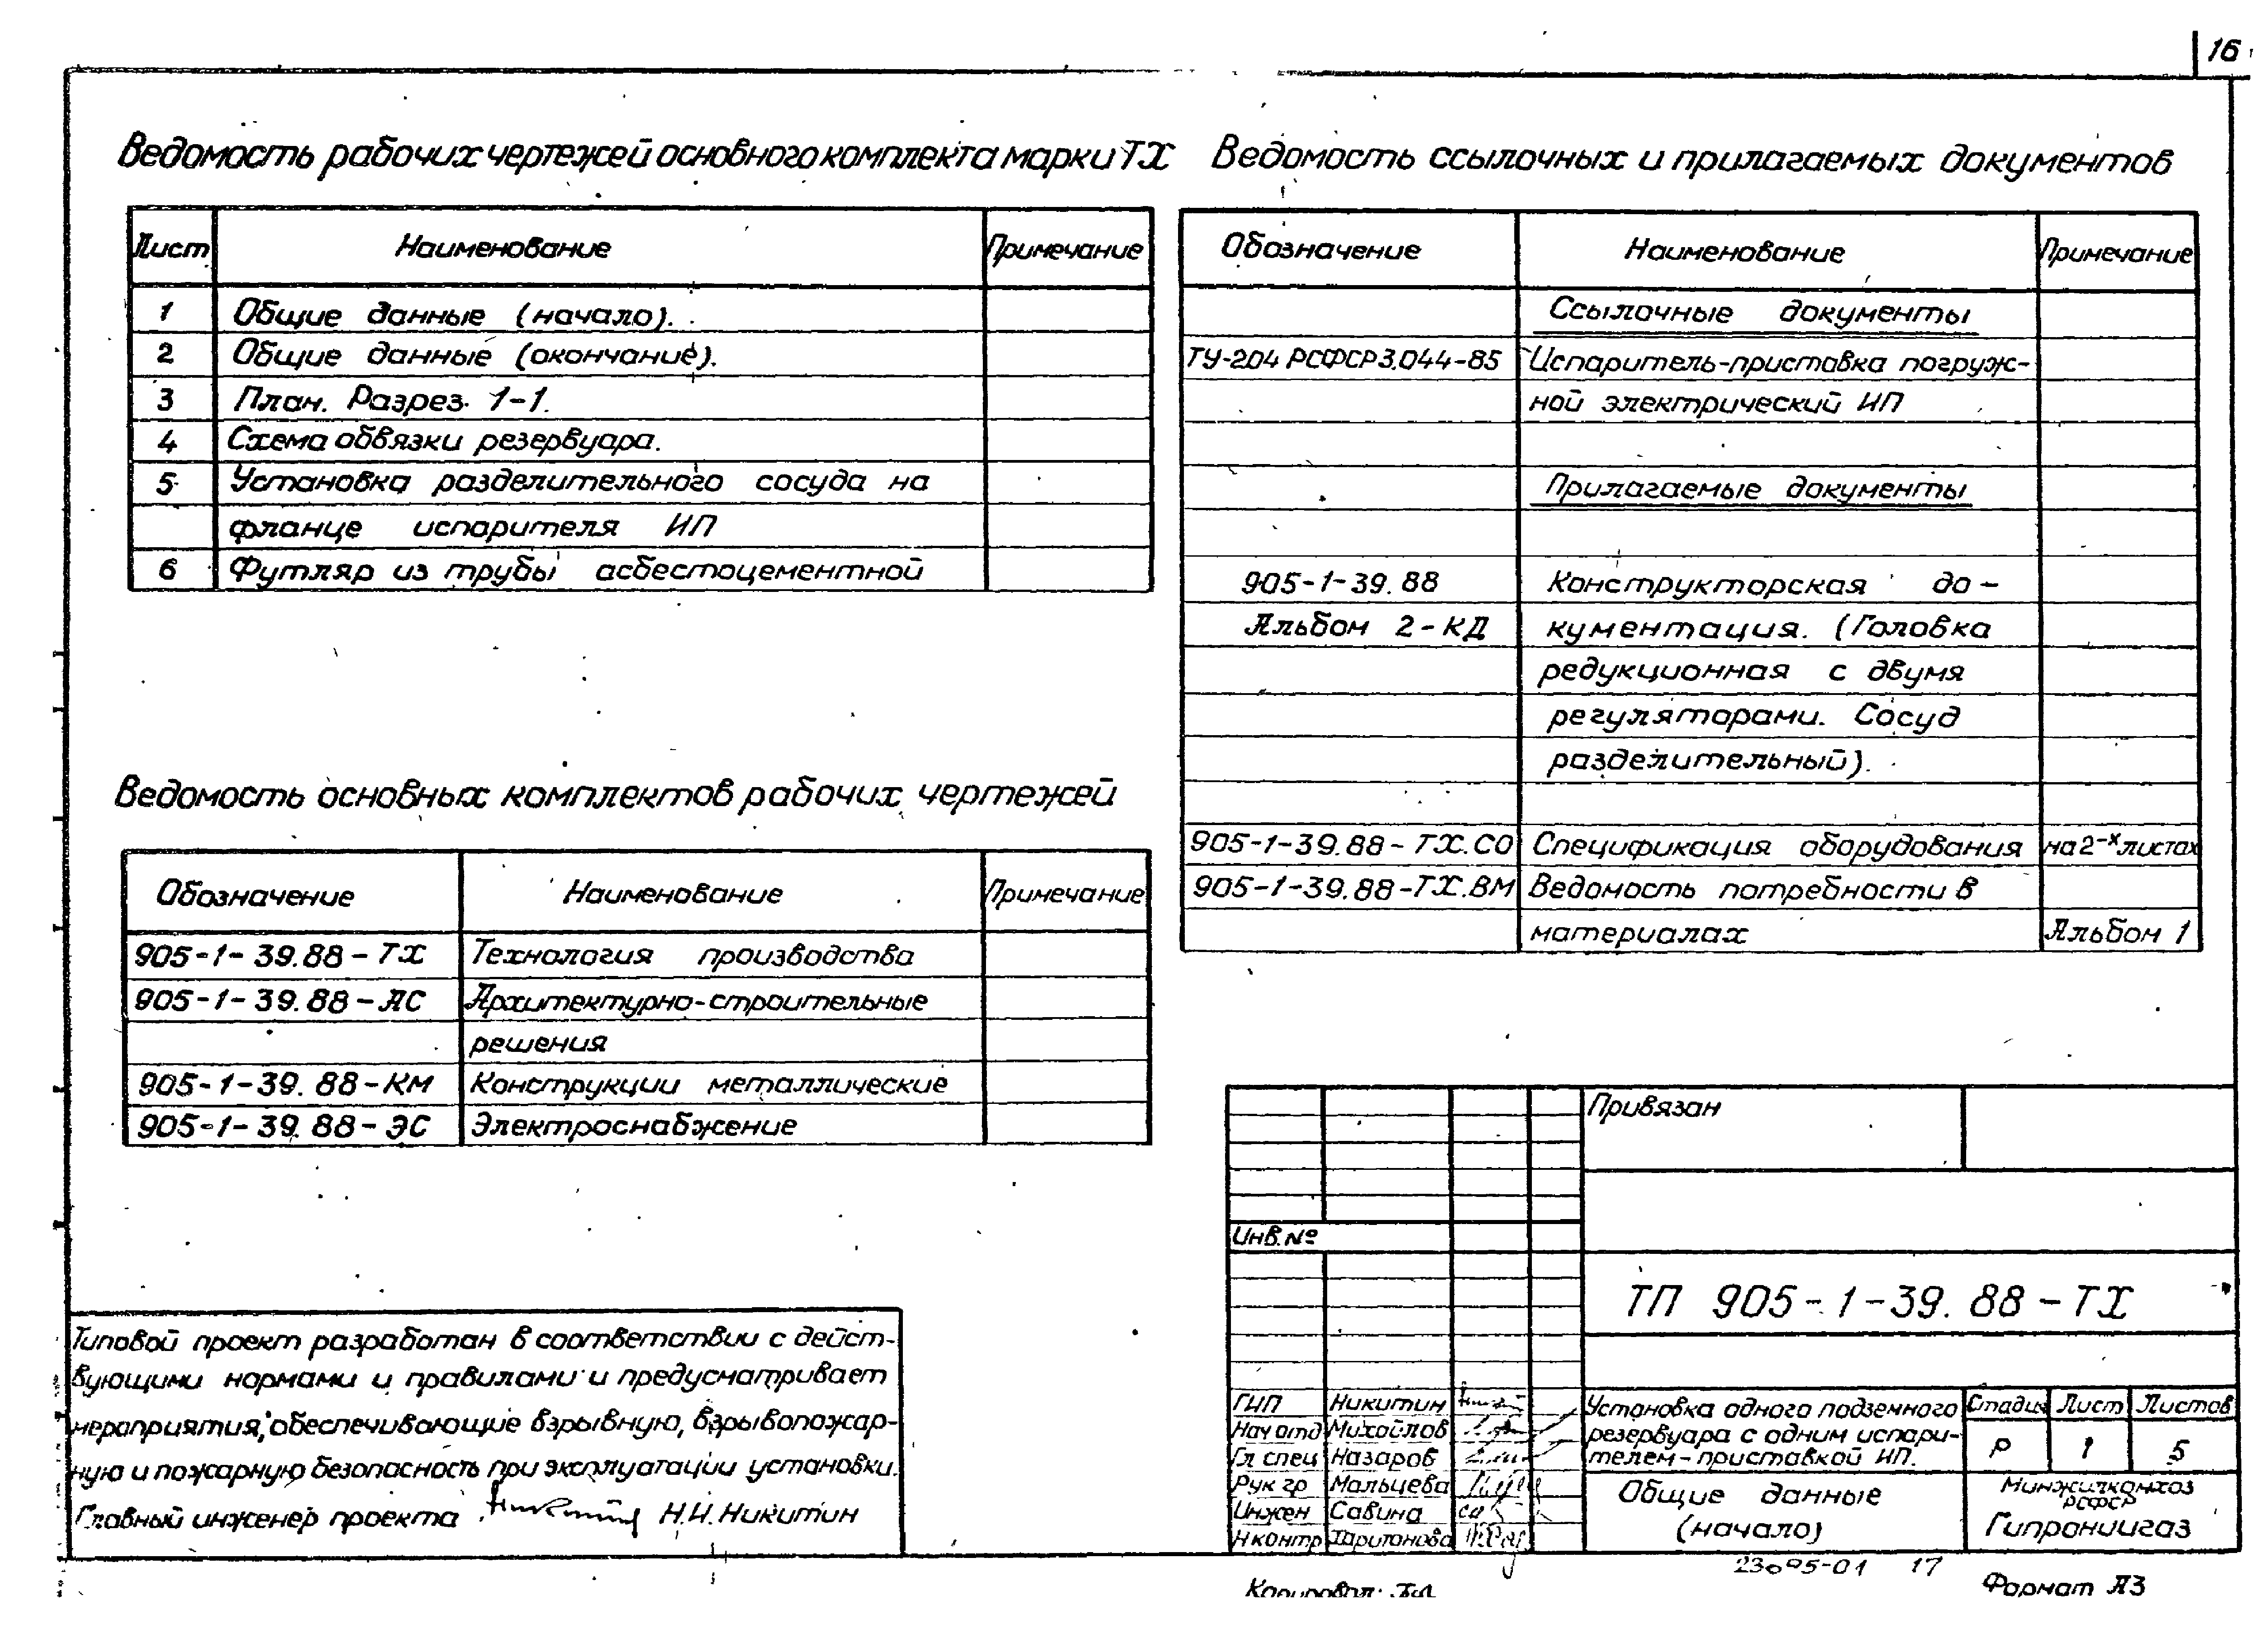 16
Ведомость рабочих чертежей основного комплекта марки ТХ
Лист Наименование Примечание
1 Общие данные (начало).
2 Общие данные (окончание).
3 План. Разрез 1-1.
4 Схема обвязки резервуара.
5 Установка разделительного сосуда на
фланце испарителя ИП
6 Футляр из трубы асбестоцементной
Ведомость основных комплектов рабочих чертежей
Обозначение Наименование Примечание
905-1-39.88-ТХ Технология производства
905-1-39.88-АС Архитектурно-строительные
решения
905-1-39.88-КМ Конструкции металлические
905-1-39.88-ЭС Электроснабжение
Типовой проект разработан в соответствии с дейст-
вующими нормами и правилами и предусматривает
мероприятия, обеспечивающие взрывную, взрывопожар-
ную и пожарную безопасность при эксплуатации установки.
Главный инженер проекта Н.И.Никитин
Ведомость ссылочных и прилагаемых документов
Обозначение Наименование Примечание
Ссылочные документы
ТУ-204 РСФСР3.044-85 Испаритель-приставка погруж-
ной электрический ИП
Прилагаемые документы
905-1-39.88 Конструкторская до-
Альбом 2-КД кументация. (Головка
редукционная с двумя
регуляторами. Сосуд
разделительный).
905-1-39.88-ТХ.СО Спецификация оборудования на 2-х листах
905-1-39.88-ТХ.ВМ Ведомость потребности в
материалах Альбом 1
Привязан
Инв.№
ТП 905-1-39.88-ТХ
ГИП Никитин
Нач отд Михайлов
Гл спец Назаров
Рук гр Мальцева
Инжен Савина
Н контр Харитонова
Установка одного подземного
резервуара с одним испари-
телем-приставкой ИП.
Стадия Лист Листов
Р 1 5
Общие данные
(начало)
Минжилкомхоз
РСФСР
Гипрониигаз
23095-01 17
Копировал:
Формат А3